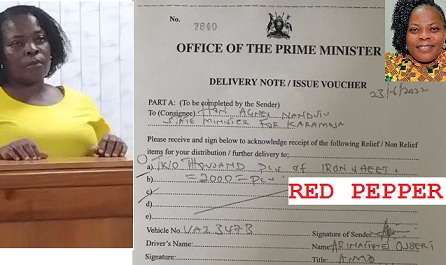 No. 7840
OFFICE OF THE PRIME MINISTER
DELIVERY NOTE / ISSUE VOUCHER
23/6/2022
PART A: (To be completed by the Sender)
To (Consignee) HON AGNES NANDUTU
STATE MINISTER FOR KARAMOJA
Please receive and sign below to acknowledge receipt of the following Relief / Non Relief
items for your distribution / further delivery to;
a) TWO THOUSAND PCS OF IRON SHEET
b) =2000= Pcs
c)
d)
e)
RED PEPPER
Vehicle No. UA2 347B
Signature of Sender
Driver's Name:
Name
Signature:
Title: